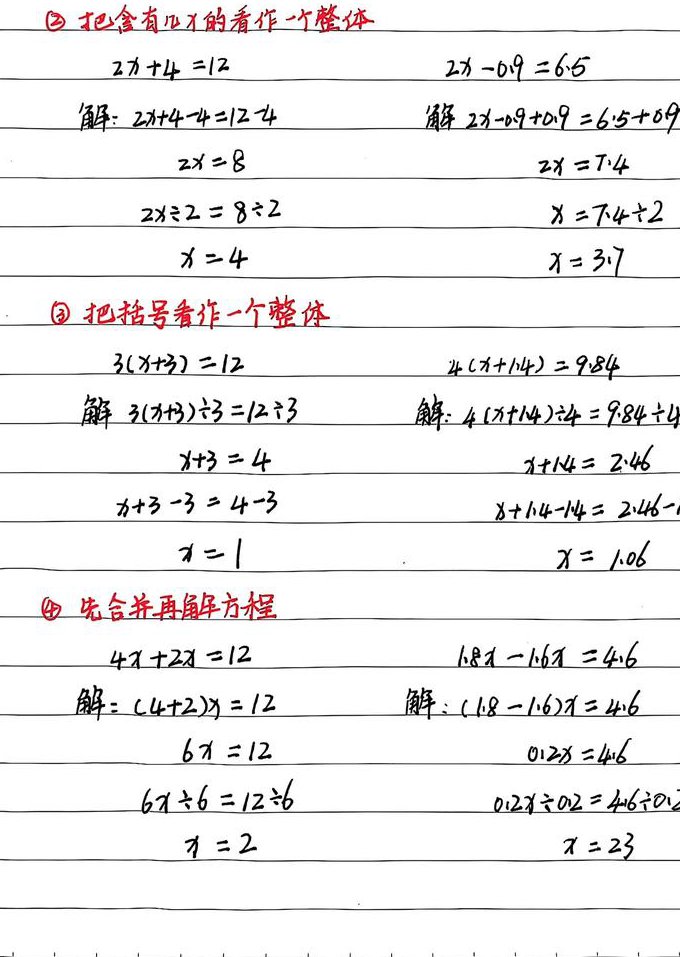 ② 把含有几x的看作一个整体
2x+4=12 2x-0.9=6.5
解：2x+4-4=12-4 解 2x-0.9+0.9=6.5+0.9
2x=8 2x=7.4
2x÷2=8÷2 x=7.4÷2
x=4 x=3.7
③ 把括号看作一个整体
3(x+3)=12 4(x+1.4)=9.84
解 3(x+3)÷3=12÷3 解：4(x+1.4)÷4=9.84÷4
x+3=4 x+1.4=2.46
x+3-3=4-3 x+1.4-1.4=2.46-1
x=1 x=1.06
④ 先合并再解方程
4x+2x=12 1.8x-1.6x=4.6
解：(4+2)x=12 解：(1.8-1.6)x=4.6
6x=12 0.2x=4.6
6x÷6=12÷6 0.2x÷0.2=4.6÷0.2
x=2 x=23